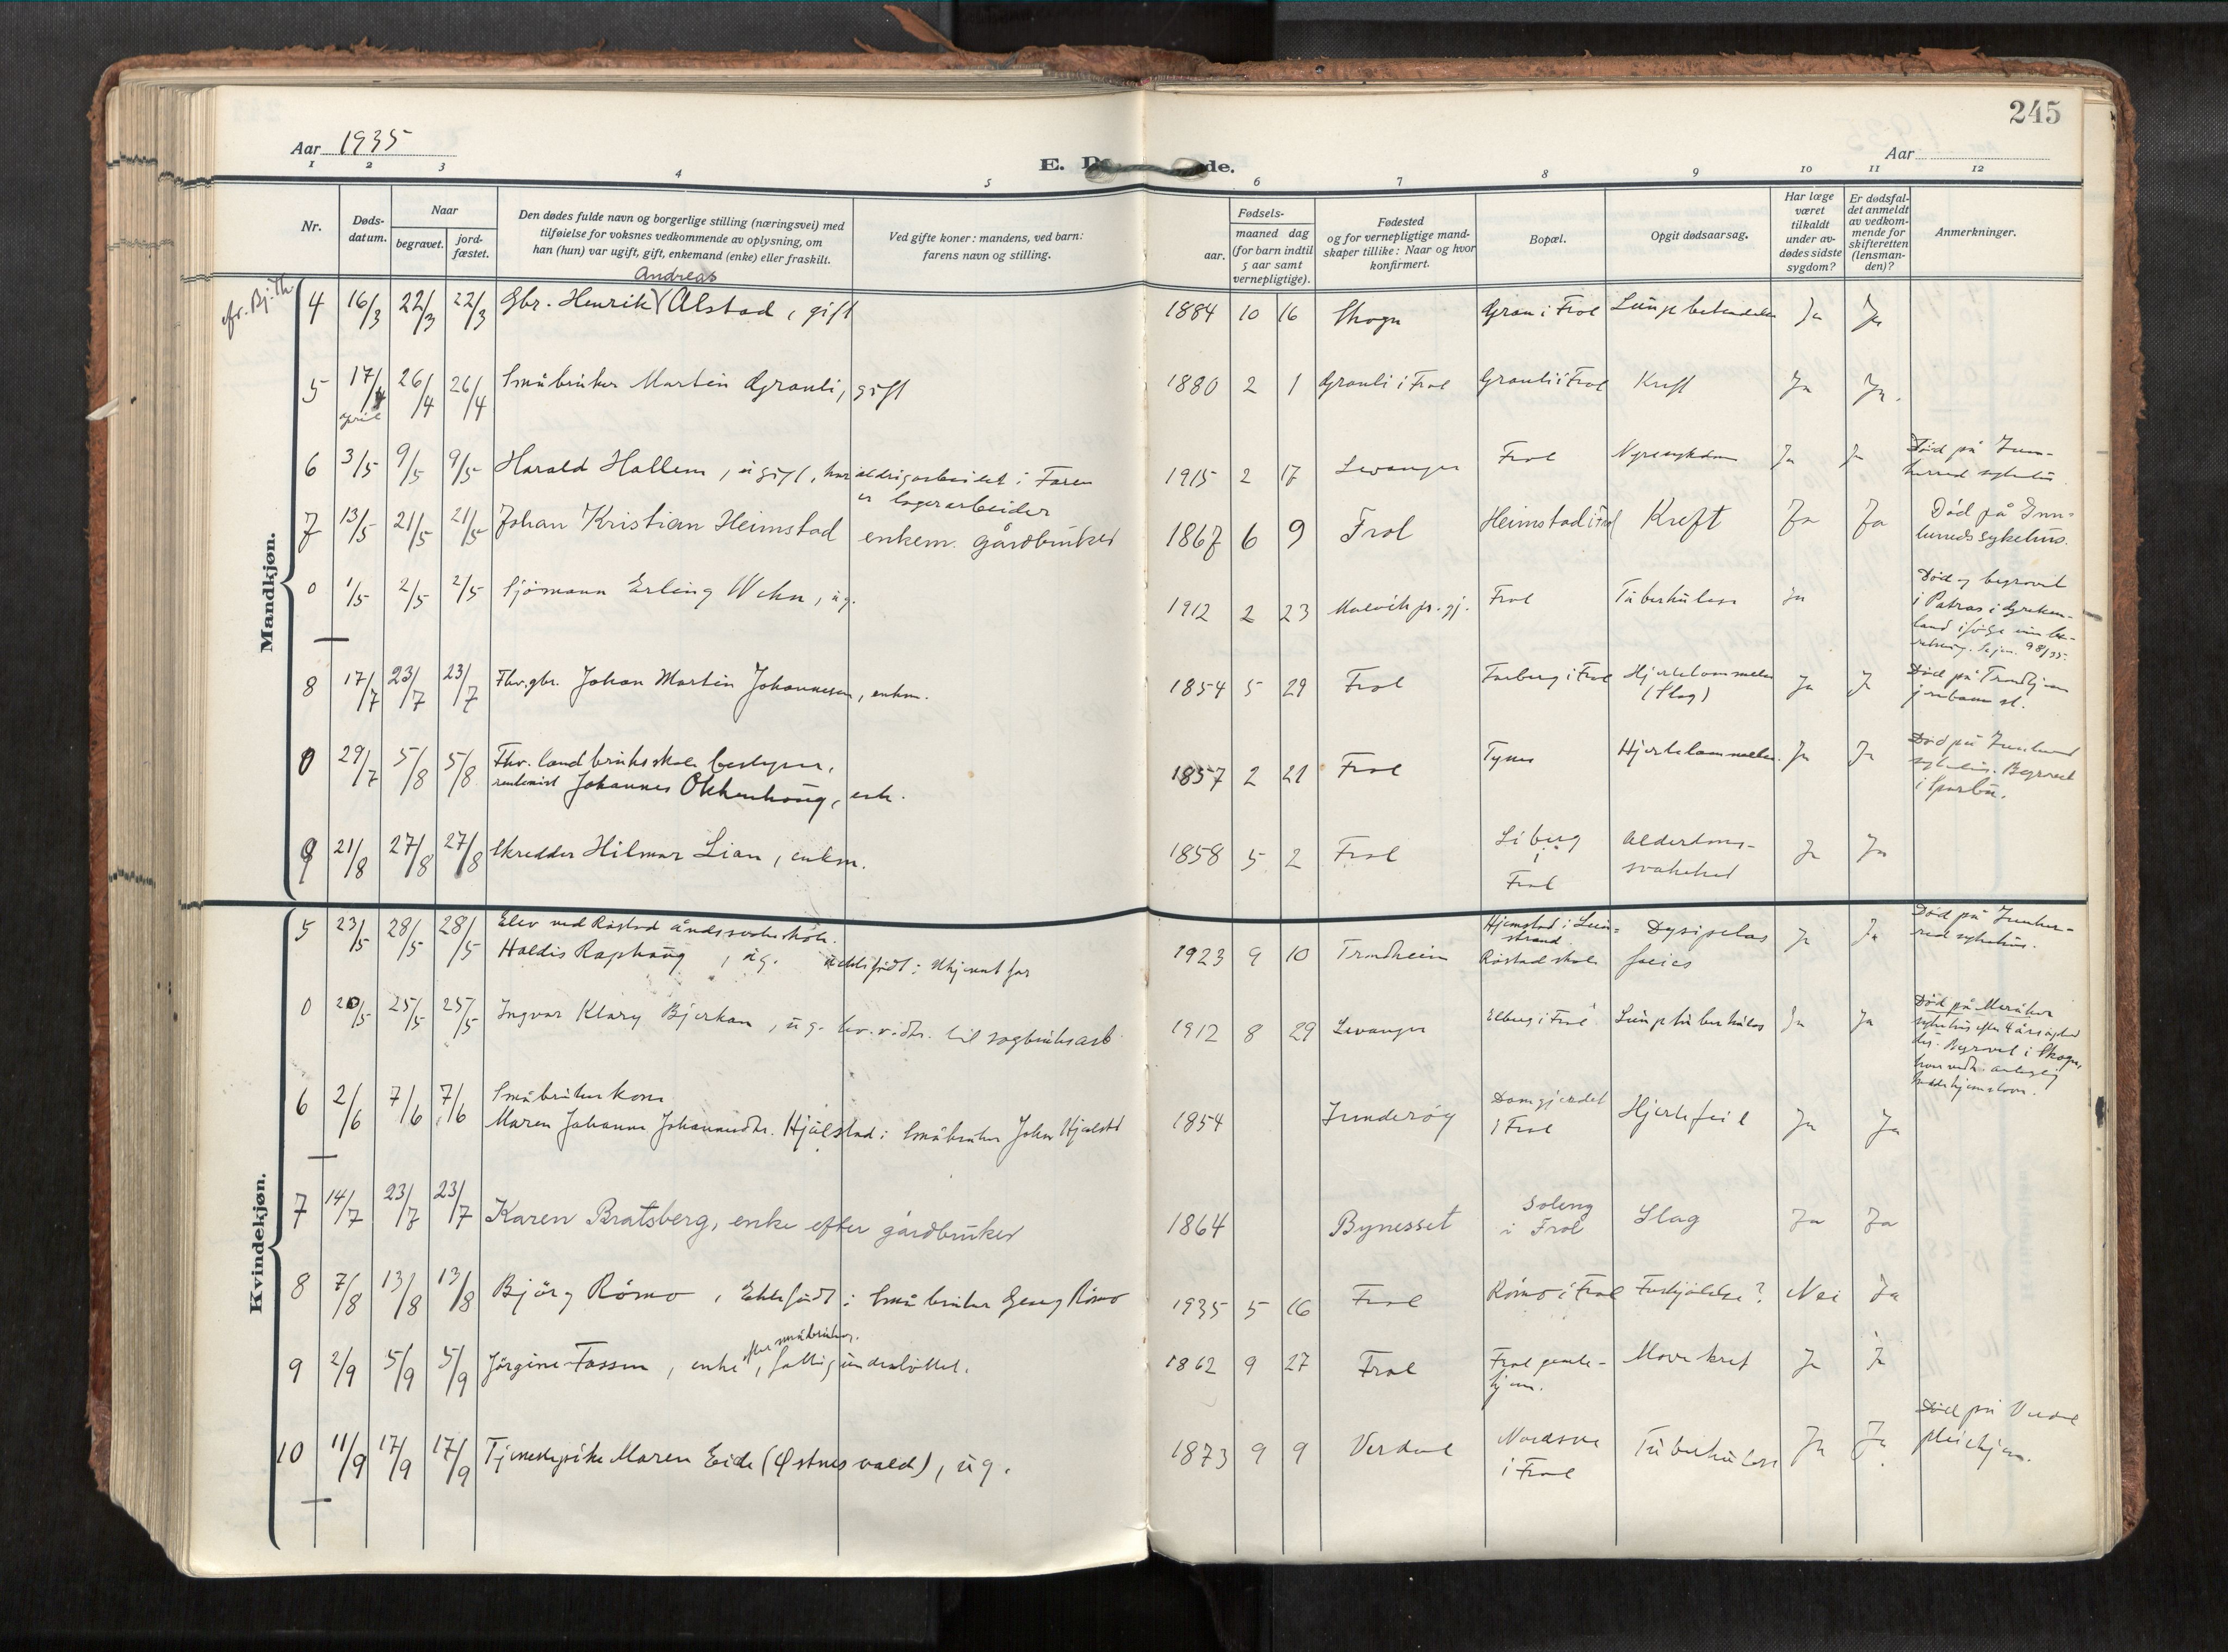 245
Aar 1935
E. D de.
Aar
1 2 3 4 5 6 7 8 9 10 11 12
Nr.
Døds-
datum.
Naar
begravet.
jord-
fæstet.
Den dødes fulde navn og borgerlige stilling (næringsvei) med
tilføielse for voksnes vedkommende av oplysning, om
han (hun) var ugift, gift, enkemand (enke) eller fraskilt.
Ved gifte koner: mandens, ved barn:
farens navn og stilling.
Fødsels-
aar.
maaned dag
(for barn indtil
5 aar samt
vernepligtige).
Fødested
og for vernepligtige mand-
skaper tillike: Naar og hvor
konfirmert.
Bopæl.
Opgit dødsaarsag.
Har læge
været
tilkaldt
under av-
dødes sidste
sygdom?
Er dødsfal-
det anmeldt
av vedkom-
mende for
skifteretten
(lensman-
den)?
Anmerkninger.
Mandkjøn.
Andreas
4 16/3 22/3 22/3 Gbr. Henrik Alstad, gift 1884 10 16 Skogn Gran i Frol Ja Ja
5 17/4 26/4 26/4 Småbruker Martin Granli, gift 1880 2 1 Granli i Frol Granli i Frol Kreft Ja Ja.
april
6 3/5 9/5 9/5 Harald Hallem, ugift, har aldrig arbeidet i Faren 1915 2 17 Levanger Frol Nyresykdom Ja Ja Død på Inn-
herred sykehus.
er lagerarbeider
7 13/5 21/5 21/5 Johan Kristian Heimstad enkem. gårdbruker 1867 6 9 Frol Heimstad i Frol Kreft Ja Ja Død på Inn-
herreds sykehus.
0 1/5 2/5 2/5 Sjömann Erling Wehn, ug. 1912 2 23 Malvik pr. gj. Frol Tuberkulose Ja Død og begravet
i Patras i Greken-
land ifølge
98/35.
8 17/7 23/7 23/7 Fhv. gbr. Johan Martin Johannesen, enkm. 1854 5 29 Frol i Frol Hjertelammelse
(Slag) Ja Ja Død på Trondhjem
jernbane st.
0 29/7 5/8 5/8 Fhv. landbruksskole bestyrer,
rentenist Johannes Okkenhaug, enk. 1857 2 21 Frol Tynes Hjertelammelse. Ja Ja Død på Innherred
sykehus. Begravet
i Sparbu.
9 21/8 27/8 27/8 Skredder Hilmar Lian, enkm. 1858 5 2 Frol Liberg
i
Frol Alderdoms-
svakhet Ja Ja
Kvindekjøn.
5 23/5 28/5 28/5 Elev ved Røstad åndssvakeskole.
Haldis Raphaug, ug. 1923 9 10 Trondheim Hjemstad i Lein-
strand
Røstad skole Ja Ja Død på Innher-
red sykehus.
0 20/5 25/5 25/5 Ingvar Klary Bjerkan, ug. 1912 8 29 Levanger i Frol Lungetuberkulose Ja Ja Død på Meråker
sykehus efter 4 års
Begravet i Skogn,
6 2/6 7/6 7/6 Småbrukerkone
Maren Johanna Johannesdtr. Hjälstad: Småbruker John Hjelstad 1854 Inderøy Damgjerdet
i Frol Hjertefeil Ja Ja
7 14/7 23/7 23/7 Karen Bratsberg, enke efter gårdbruker 1864 Bynesset Soleng
i Frol Slag Ja Ja
8 7/8 13/8 13/8 Bjørg Römo, Ektefødt: Småbruker Georg Römo 1935 5 16 Frol Römo i Frol Forkjölelse? Nei Ja
efter småbruker.
9 2/9 5/9 5/9 Jörgine Fossen, enke, fattigunderstøttet. 1862 9 27 Frol Frol gamle-
hjem. Mavekreft Ja Ja
10 11/9 17/9 17/9 Tjenestepike Maren Eide (Østnesvald), ug. 1873 9 9 Verdal
i Frol Tuberkulose Ja Ja. Død på Verdal
pleiehjem.